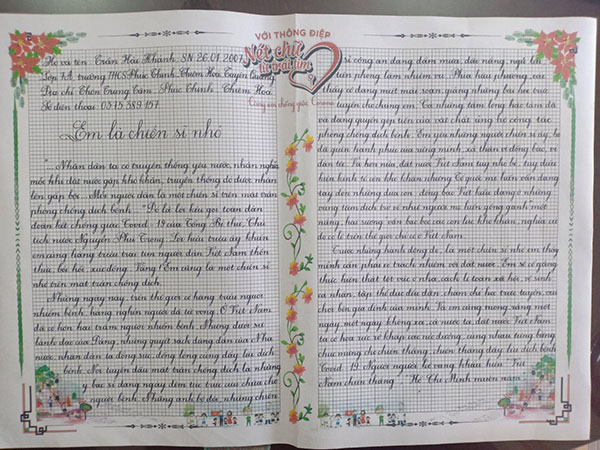 VỚI THÔNG ĐIỆP
Nét chữ
từ trái tim
Cùng em chống giặc Corona
Họ và tên: Trần Hải Khánh. SN 26.01.2007
Lớp 7A, trường THCS Phúc Thịnh, Chiêm Hóa, Tuyên Quang
Địa chỉ: Thôn Trung Tâm, Phúc Thịnh, Chiêm Hoá
Số điện thoại: 0375 389 157
Em là chiến sĩ nhỏ
" Nhân dân ta có truyền thống yêu nước, nhân nghĩa
mỗi khi đất nước gặp khó khăn, truyền thống đó được nhân
lên gấp bội. Mỗi người dân là một chiến sĩ trên mặt trận
phòng chống dịch bệnh". Đó là lời kêu gọi toàn dân
đoàn kết chống giặc Covid - 19 của Tổng Bí thư, Chủ
tịch nước Nguyễn Phú Trọng. Lời hiệu triệu ấy khiến
em cùng hàng triệu trái tim người dân Việt Nam thổn
thức, bồi hồi, xúc động. Vâng! Em cũng là một chiến sĩ
nhỏ trên mặt trận chống dịch.
Những ngày này, trên thế giới có hàng triệu người
nhiễm bệnh, hàng nghìn người đã tử vong. Ở Việt Nam
đã có hơn hai trăm người nhiễm bệnh. Nhưng dưới sự
lãnh đạo của Đảng, những quyết sách đúng đắn của Nhà
nước, nhân dân ta đồng sức, đồng lòng cùng đẩy lùi dịch
bệnh. Nơi tuyến đầu mặt trận chống dịch là những
y bác sĩ đang ngày đêm túc trực cứu chữa cho
người bệnh. Những anh bộ đội, những chiến
sĩ công an đang dầm mưa, dãi nắng, ngủ lán
trên rừng làm nhiệm vụ. Phía hậu phương, các
thầy cô đang miệt mài soạn giảng những bài học trực
tuyến cho chúng em. Cả những tấm lòng hảo tâm đã
và đang quyên góp tiền của vật chất ủng hộ công tác
phòng chống dịch bệnh. Em yêu những người chiến sĩ ấy, họ
đã quên hạnh phúc của riêng mình, xả thân vì đồng bào, vì
dân tộc. Và hơn nữa, đất nước Việt Nam tuy nhỏ bé, tuy điều
kiện kinh tế còn khó khăn nhưng Tổ quốc mẹ hiền vẫn dang
tay đón những đứa con đồng bào Việt kiều đang ở những
vùng tâm dịch trở về như người mẹ hiền gồng gánh "một
nắng, hai sương" vẫn bao bọc các con lúc khó khăn, nghĩa cử
đó có lẽ trên thế giới chỉ có ở Việt Nam.
Trước những hành động đó, là một chiến sĩ nhỏ em thấy
mình cần phải có trách nhiệm với đất nước. Em sẽ cố gắng
thực hiện thật tốt việc ở nhà, cách li toàn xã hội, vệ sinh
cá nhân, tập thể dục đều đặn, chăm chỉ học trực tuyến, vui
chơi bên gia đình của mình. Và em cũng mong, sáng một
ngày, một ngày không xa, cả nước ta, đất nước Việt Nam
ta cờ hoa rực rỡ khắp các nẻo đường, cùng nhau tưng bừng
chúc mừng cho chiến thắng, chiến thắng đẩy lùi dịch bệnh
Covid - 19. Người người hô vang khẩu hiệu "Việt
Nam chiến thắng", "Hồ Chí Minh muôn năm".